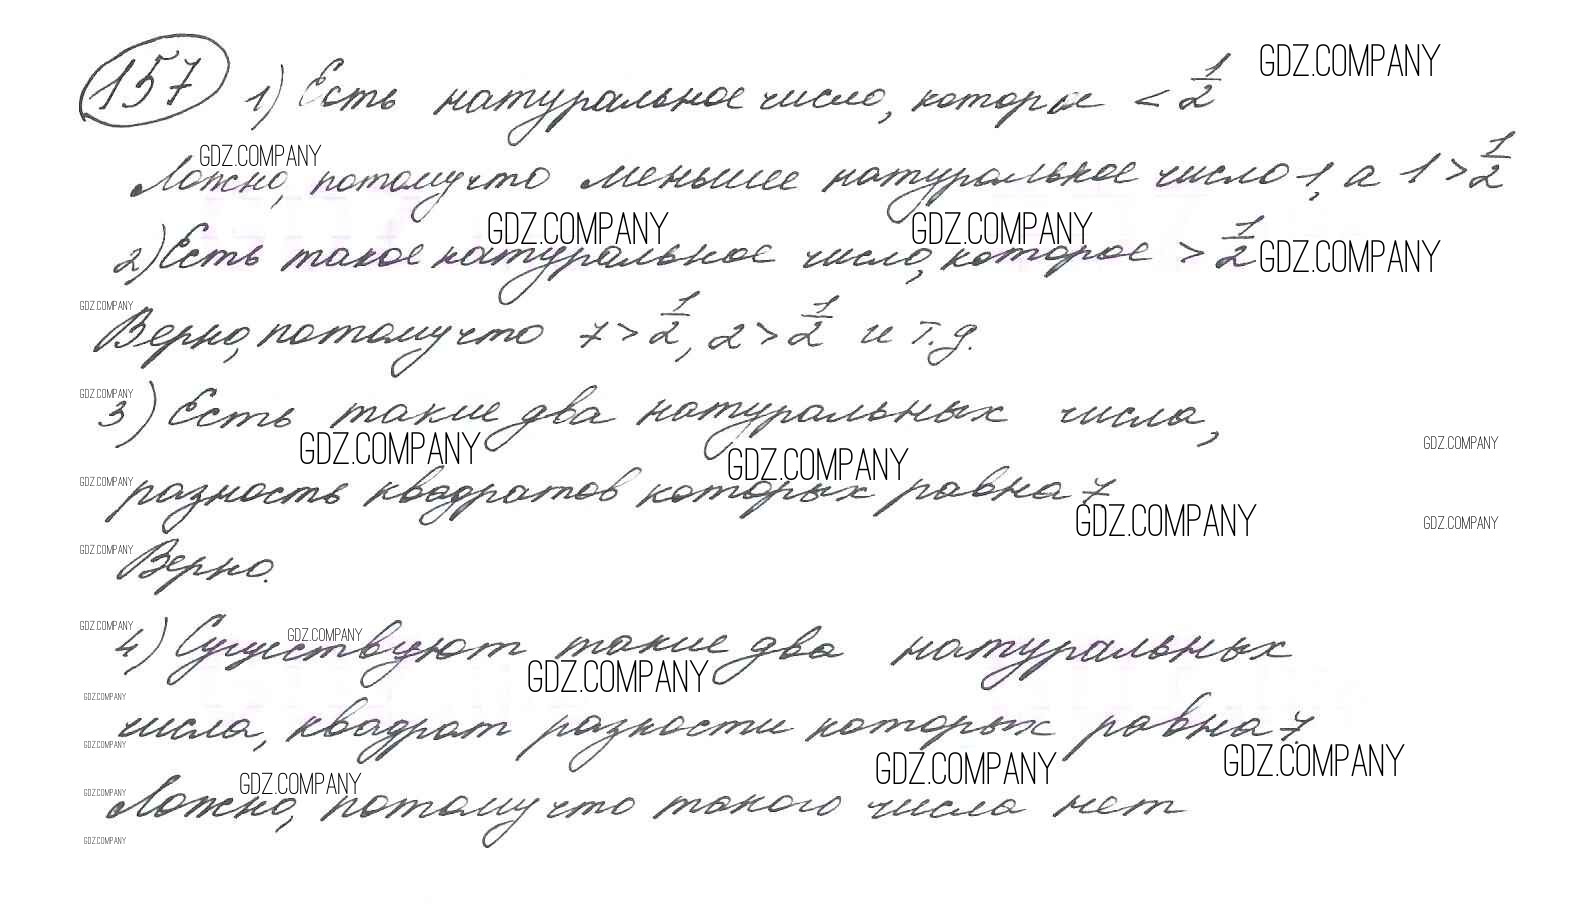 157 1) Есть натуральное число, которое < 1/2 GDZ.COMPANY
GDZ.COMPANY
Ложно, потому что меньшее натуральное число 1, а 1 > 1/2
GDZ.COMPANY GDZ.COMPANY
2) Есть такое натуральное число, которое > 1/2 GDZ.COMPANY
GDZ.COMPANY
Верно, потому что 7 > 1/2, 2 > 1/2 и т.д.
GDZ.COMPANY
3) Есть такие два натуральных числа,
GDZ.COMPANY GDZ.COMPANY GDZ.COMPANY
GDZ.COMPANY
разность квадратов которых равна 7
GDZ.COMPANY GDZ.COMPANY
GDZ.COMPANY
Верно.
GDZ.COMPANY GDZ.COMPANY
4) Существуют такие два натуральных
GDZ.COMPANY
GDZ.COMPANY
числа, квадрат разности которых равна 7.
GDZ.COMPANY GDZ.COMPANY GDZ.COMPANY
GDZ.COMPANY GDZ.COMPANY
Ложно, потому что такого числа нет
GDZ.COMPANY